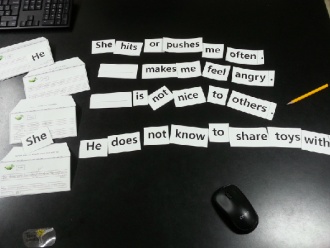 He
She hits or pushes me often.
makes me feel angry.
is not nice to others.
She
He does not know to share toys with